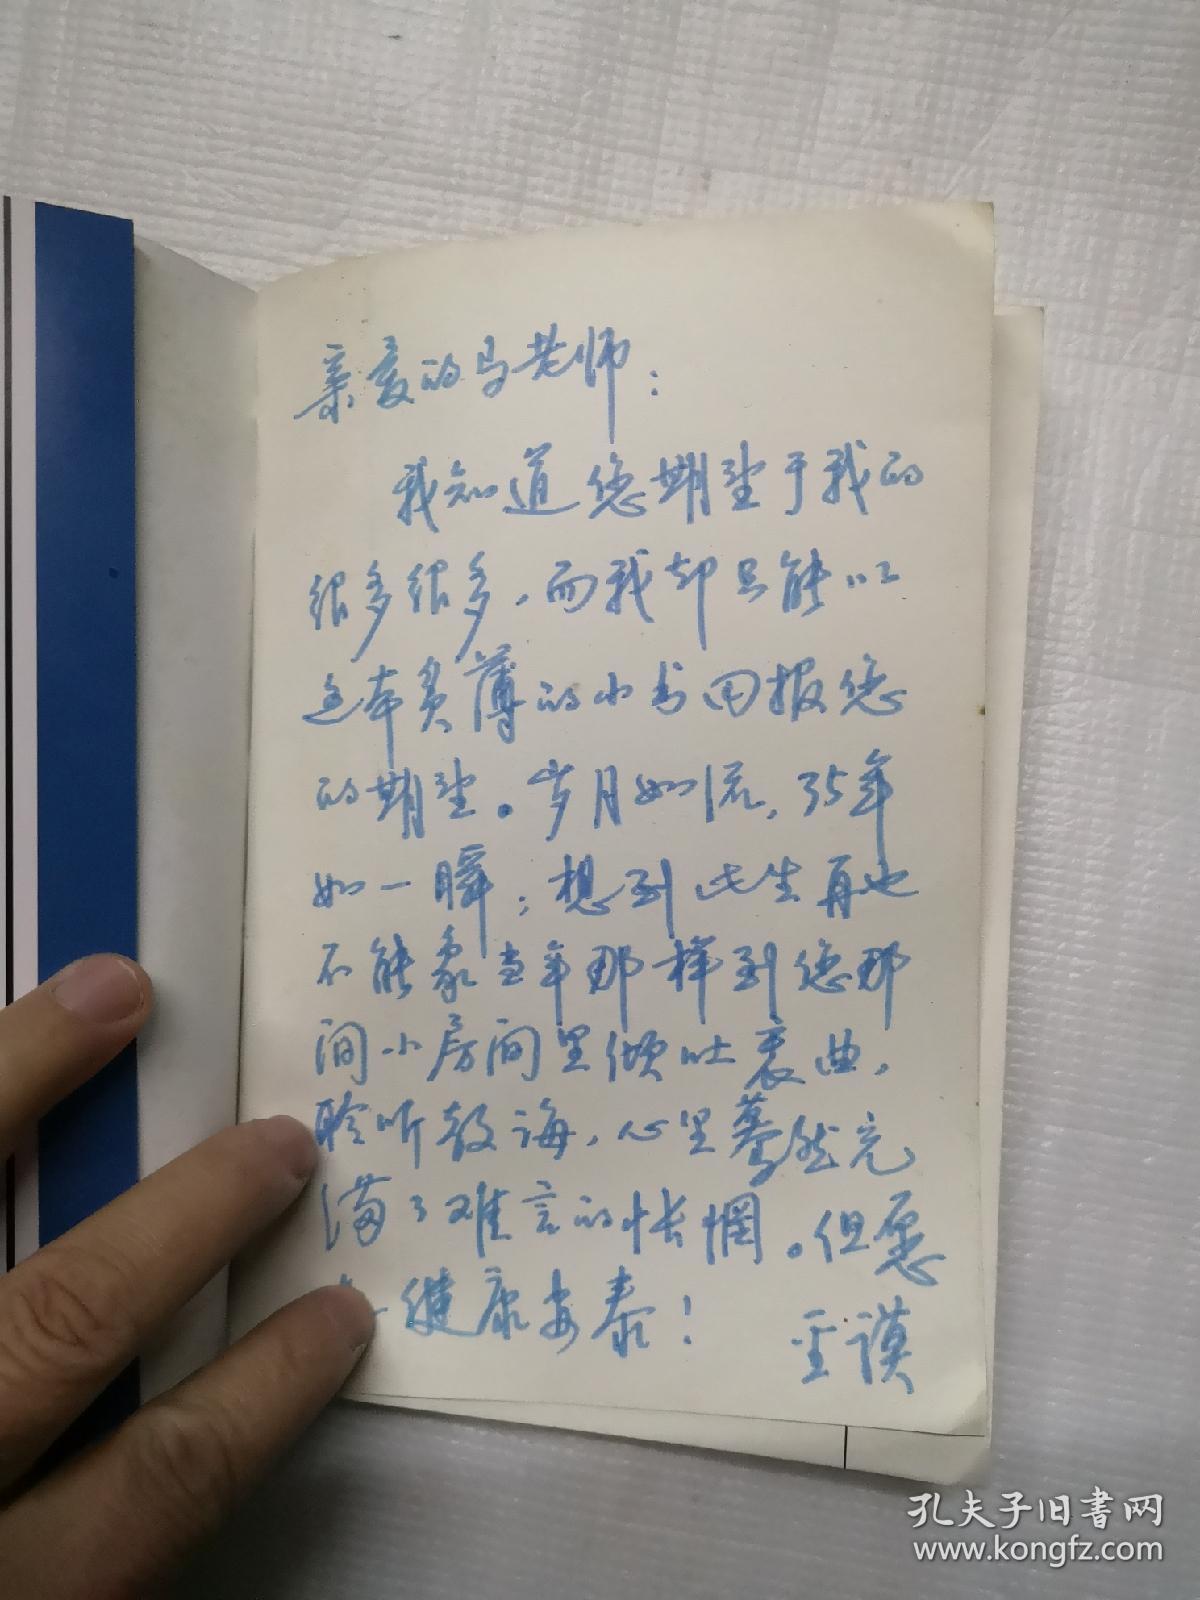 亲爱的马老师：
我知道您期望于我的
很多很多，而我却只能以
这本菲薄的小书回报您
的期望。岁月如流，35年
如一瞬；想到此生再也
不能象当年那样到您那
间小房间里倾吐衷曲，
聆听教诲，心里蓦然充
满了难言的怅惘。但愿
健康安泰！
圣谟
孔夫子旧书网
www.kongfz.com